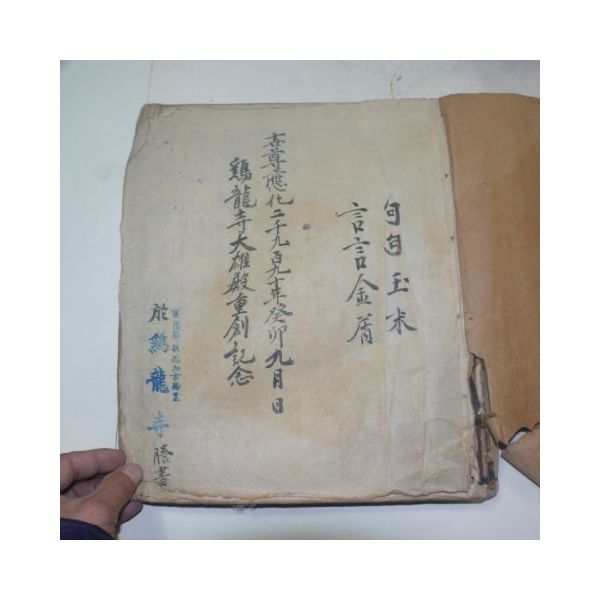 句句玉朩
言言金屑
世尊應化二千九百九十年癸卯九月日
鷄龍寺大雄殿重創記念
於鷄龍寺謄書